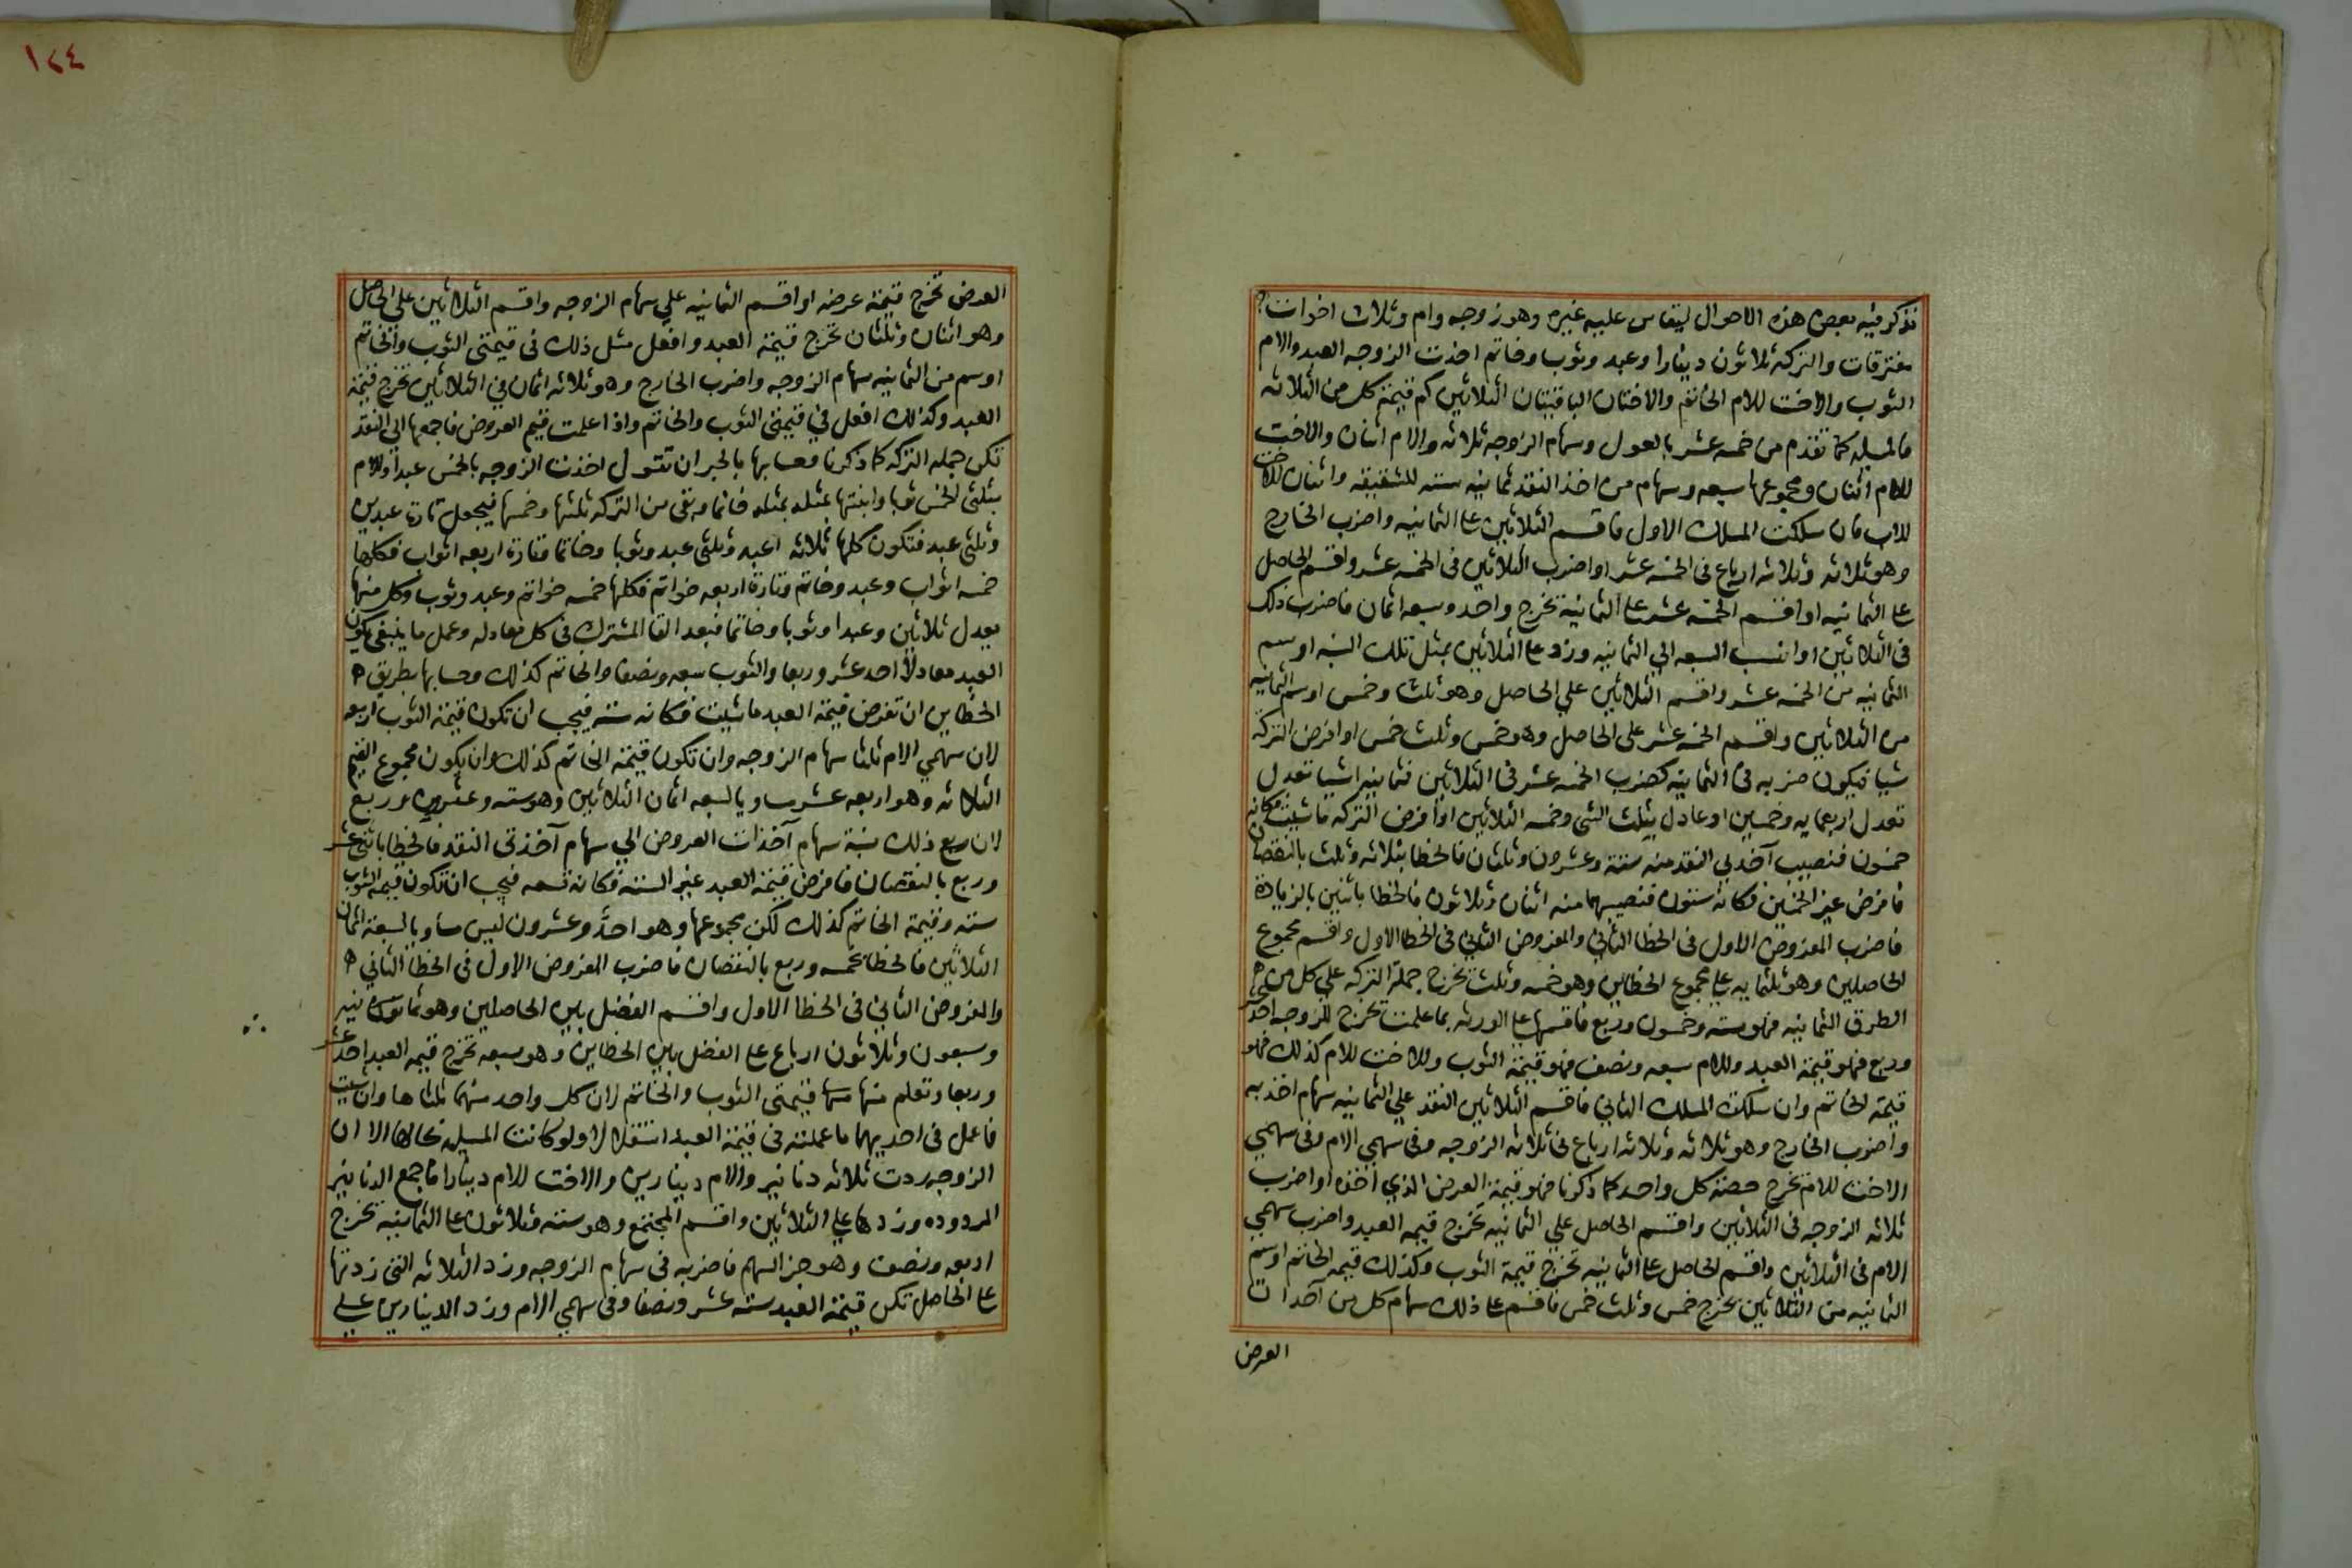 نذكر فيه بعض هذه الاحوال ليقاس عليه غيره وهو زوجه وام وثلاث اخوات
مفترقات والتركة ثلاثون دينارا وعبد وثوب وخاتم اخذت الزوجه العبد والام
الثوب والاخت للام الخاتم والاختان الباقيتان الثلاثين كم قيمة كل من الثلاثه
فالمسله كما تقدم من خمسه عشر بالعول وسهام الزوجه ثلاثه والام اثنان والاخت
للام اثنان ومجموعها سبعه وسهام من اخذ النقد ثمانيه سته للشقيقه واثنان للاخت
للاب فان سلكت المسلك الاول فاقسم الثلاثين على الثمانيه واضرب الخارج
وهو ثلاثه وثلاثه ارباع في الخمسه عشر او اضرب الثلاثين في الخمسه عشر واقسم الحاصل
على الثمانيه او اقسم الخمسه عشر على الثمانية تخرج واحد وسبعه اثمان فاضرب ذلك
في الثلاثين او انسب السبعه الي الثمانيه وزد على الثلاثين بمثل تلك النسبه او سم
الثمانيه من الخمسه عشر واقسم الثلاثين علي الحاصل وهو ثلث وخمس او سم الثمانيه
من الثلاثين واقسم الخمسه عشر على الحاصل وهو خمس وثلث خمس او افرض التركة
شيا فيكون ضربه في الثمانيه كضرب الخمسه عشر في الثلاثين فثمانيه اشيا تعدل
تعدل اربعمايه وخمسين او عادل بثلث الشي وخمسه الثلاثين او افرض التركه ما شيت فكانه
خمسون فنصيب آخذي النقد منه ستة وعشرون وثلثان فالخطا بثلاثه وثلث بالنقصان
فافرض غير الخمسين فكانه ستون فنصيبهما منه اثنان وثلاثون فالخطا باثنين بالزيادة
فاضرب المفروض الاول في الخطا الثاني والمفروض الثاني في الخطا الاول واقسم مجموع
الحاصلين وهو ثلثمايه على مجموع الخطاين وهو خمسه وثلث تخرج جملة التركه علي كل من
الطرق الثمانيه فهو سته وخمسون وربع فاقسمها على الورثه بما علمت تخرج للزوجه احد عشر
وربع فهو قيمة العبد وللام سبعه ونصف فهو قيمة الثوب وللاخت للام كذلك فهو
قيمة الخاتم وان سلكت المسلك الثاني فاقسم الثلاثين النقد علي الثمانيه سهام اخذيه
واضرب الخارج وهو ثلاثه وثلاثه ارباع في ثلاثه الزوجه وفي سهمي الام وفي سهمي
الاخت للام تخرج حصة كل واحد كما ذكرنا فهو قيمة العرض الذي اخذه او اضرب
ثلاثه الزوجه في الثلاثين واقسم الحاصل علي الثمانيه تخرج قيمه العبد واضرب سهمي
الام في الثلاثين واقسم الحاصل على الثمانيه تخرج قيمة الثوب وكذلك قيمه الخاتم او سم
الثمانيه من الثلاثين تخرج خمس وثلث خمس فاقسم على ذلك سهام كل من آخذات
العرض
١٢٤
العرض تخرج قيمة عرضه او اقسم الثمانيه علي سهام الزوجه واقسم الثلاثين علي الحاصل
وهو اثنان وثلثان تخرج قيمة العبد وافعل مثل ذلك في قيمتي الثوب والخاتم
او سم من الثمانيه سهام الزوجه واضرب الخارج وهو ثلاثه اثمان في الثلاثين تخرج قيمة
العبد وكذلك افعل في قيمتي الثوب والخاتم واذا علمت قيم العروض فاجمعها الى النقد
تكن جمله التركه كما ذكرنا وحسابها بالجبر ان تقول اخذت الزوجه بالخمس عبدا والام
بثلثي الخمس ثوبا وابنتها بمثله بمثله خاتما وبقي من التركه ثلثها وخمسها فيجعل تارة عبدين
وثلثي عبد فتكون كلها ثلاثه اعبد وثلثي عبد وثوبا وخاتما وتارة اربعه اثواب فكلها
خمسه اثواب وعبد وخاتم وتارة اربعه خواتم فكلها خمسه خواتم وعبد وثوب وكل منها
يعدل ثلاثين وعبدا وثوبا وخاتما فبعد القا المشترك في كل معادله وعمل ما ينبغي يكون
العبد معادلا احد عشر وربعا والثوب سبعه ونصفا والخاتم كذلك وحسابها بطريق
الخطاين ان تفرض قيمة العبد ما شيت فكانه سته فيجب ان تكون قيمة الثوب اربعه
لان سهمي الام ثلثا سهام الزوجه وان تكون قيمة الخاتم كذلك وان يكون مجموع القيم
الثلاثه وهو اربعه عشر مساويا لسبعه اثمان الثلاثين وهو سته وعشرون وربع
لان ربع ذلك نسبة سهام آخذات العروض الي سهام آخذتي النقد فالخطا باثني عشر
وربع بالنقصان فافرض قيمة العبد غير الستة فكانه تسعه فيجب ان تكون قيمه الثوب
سته وقيمة الخاتم كذلك لكن مجموعها وهو احد وعشرون ليس مساويا لسبعة اثمان
الثلاثين فالخطا بخمسه وربع بالنقصان فاضرب المفروض الاول في الخطا الثاني
والمفروض الثاني في الخطا الاول واقسم الفضل بين الحاصلين وهو ثمانيه
وسبعون وثلاثون ارباع على الفضل بين الخطاين وهو سبعه تخرج قيمه العبد احد عشر
وربعا وتعلم منها قيمتي الثوب والخاتم لان كل واحد منهما ثلثاها وان شيت
فاعمل في احديهما ما عملته في قيمة العبد استقلالا ولو كانت المسيله بحالها الا ان
الزوجه ردت ثلاثه دنانير والام دينارين والاخت للام دينارا فاجمع الدنانير
المردوده وزدها علي الثلاثين واقسم المجتمع وهو سته وثلاثون على الثمانية تخرج
اربعه ونصف وهو جز السهم فاضربه في سهام الزوجه وزد الثلاثه التي زدتها
على الحاصل تكن قيمة العبد سته عشر ونصفا وفي سهمي الام وزد الدينارين علي